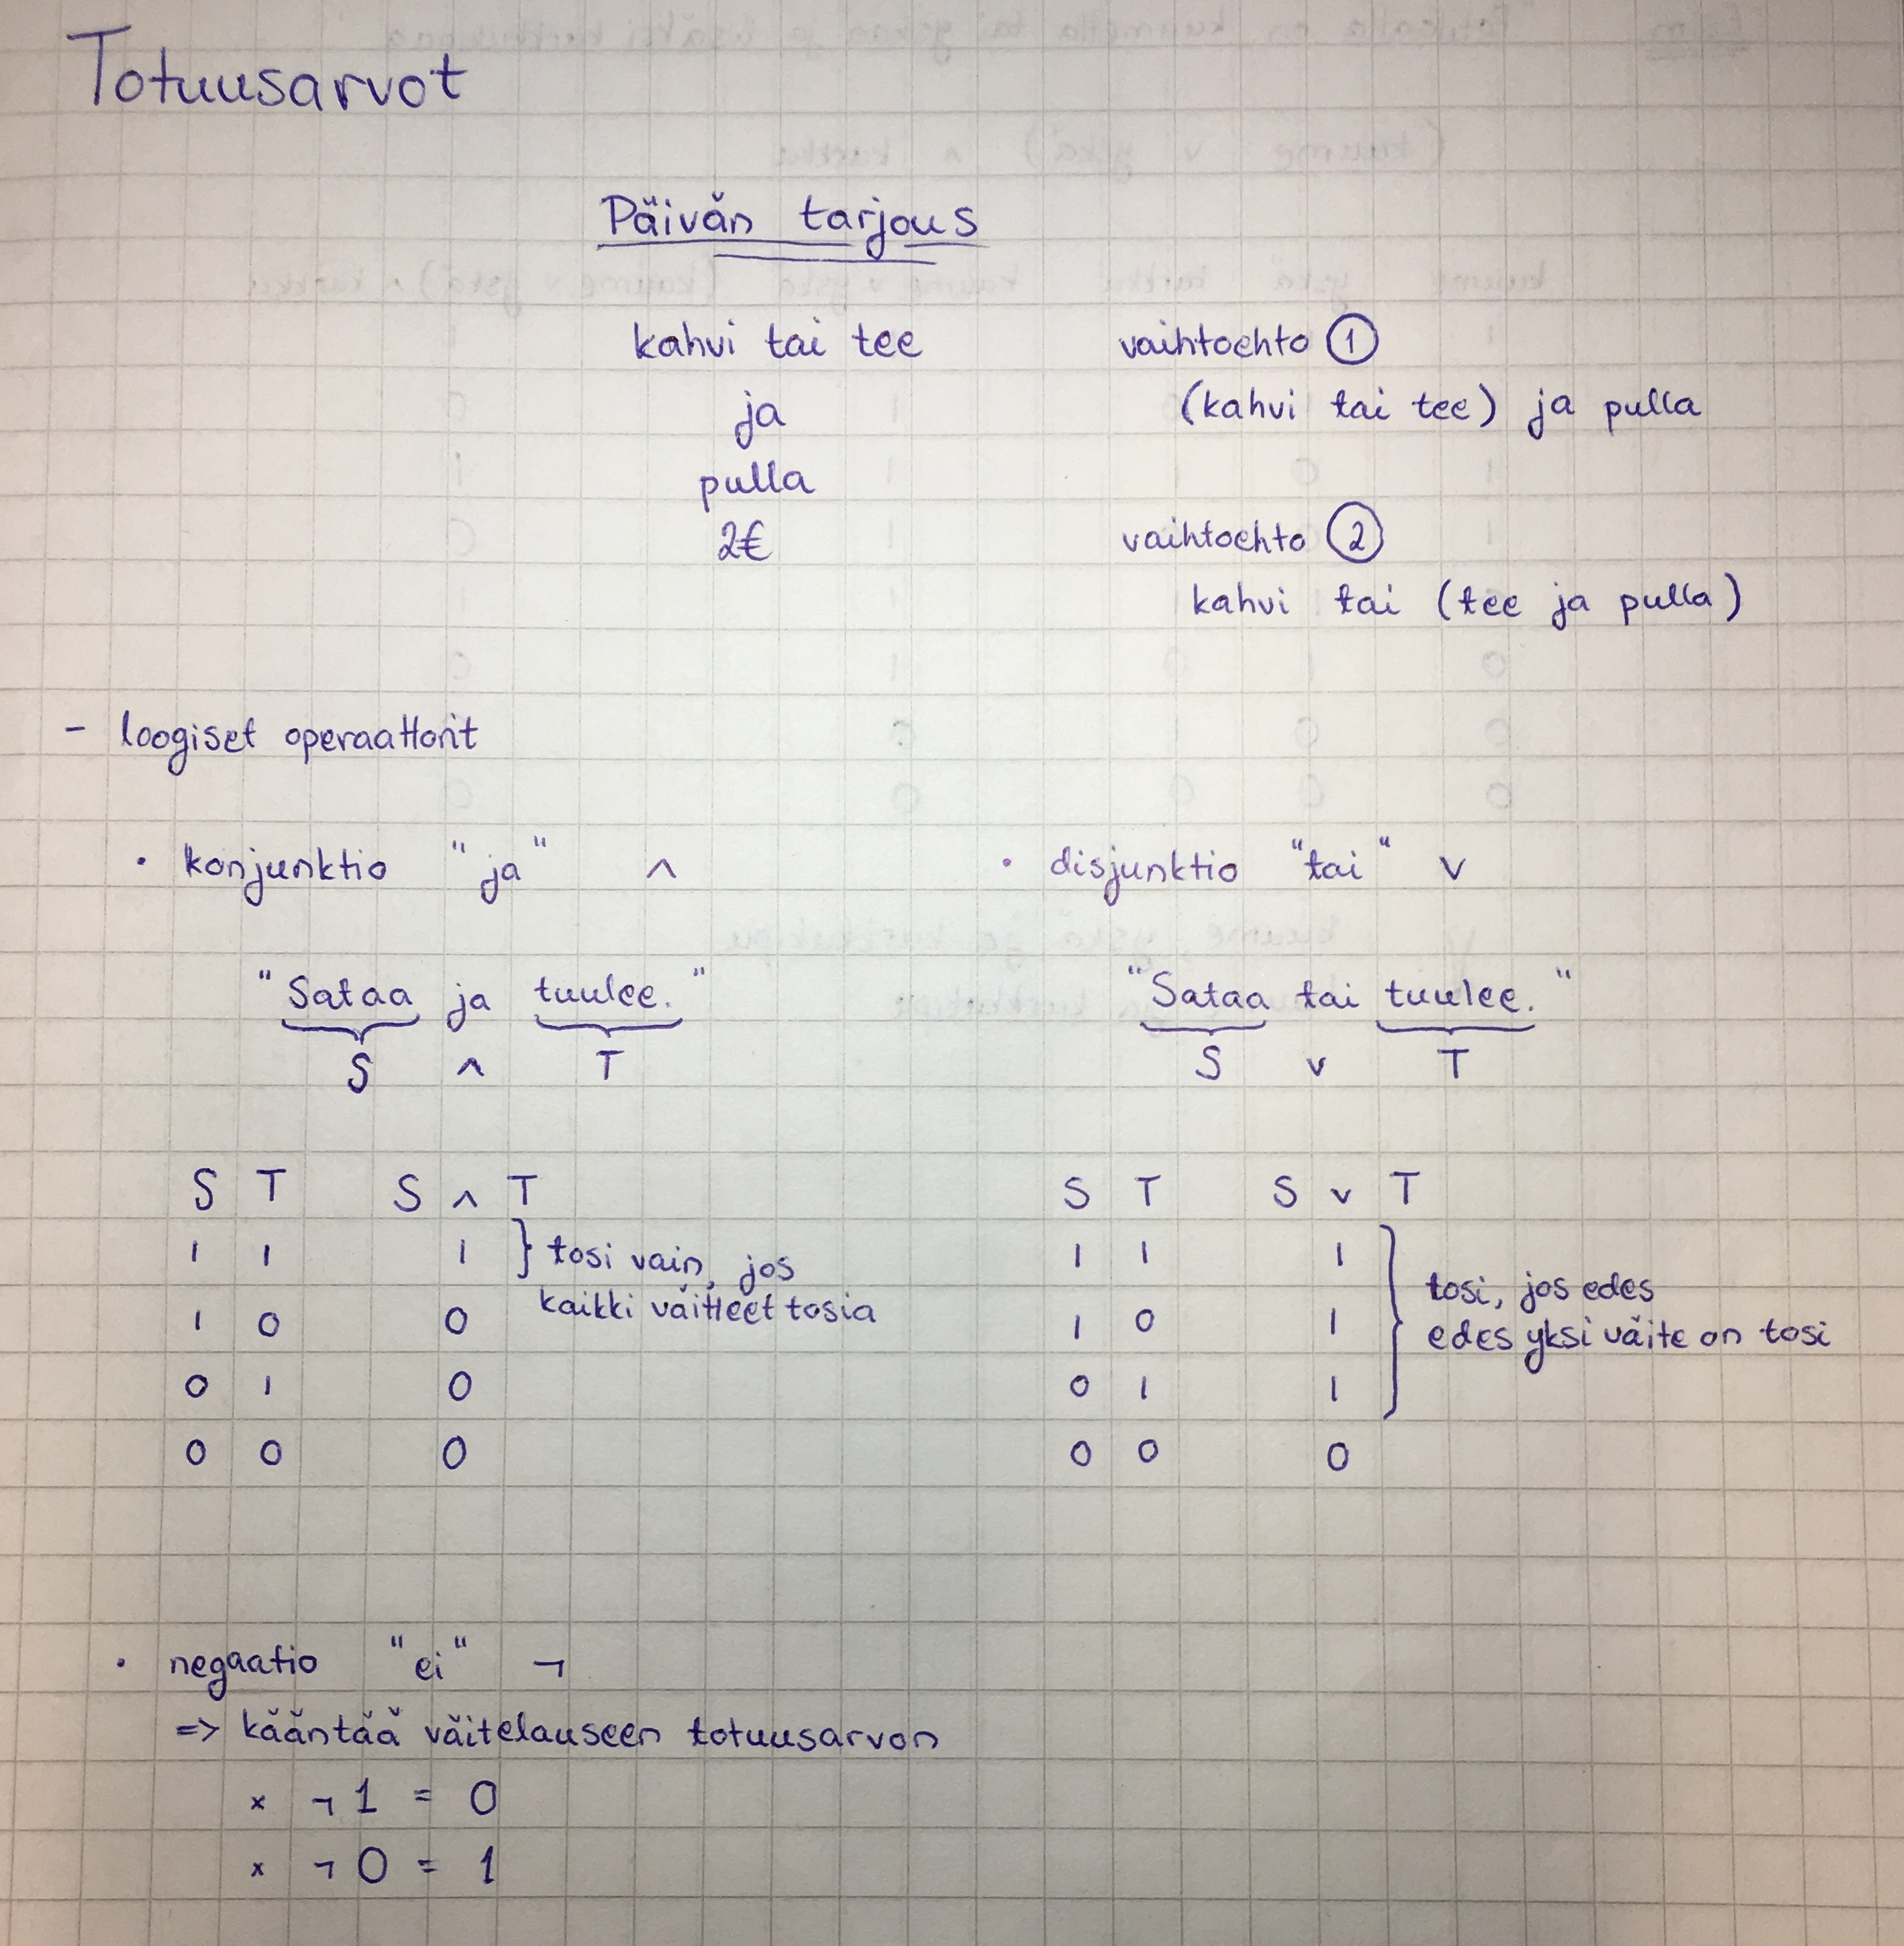 Totuusarvot
Päivän tarjous
kahvi tai tee
ja
pulla
2€
vaihtoehto 1
(kahvi tai tee) ja pulla
vaihtoehto 2
kahvi tai (tee ja pulla)
- loogiset operaattorit
• konjunktio "ja" ∧
"Sataa ja tuulee."
S ∧ T
S T S ∧ T
1 1 1 } tosi vain, jos
kaikki väitteet tosia
1 0 0
0 1 0
0 0 0
• disjunktio "tai" ∨
"Sataa tai tuulee."
S ∨ T
S T S ∨ T
1 1 1
1 0 1
0 1 1
0 0 0
} tosi, jos edes
edes yksi väite on tosi
• negaatio "ei" ¬
=> kääntää väitelauseen totuusarvon
× ¬1 = 0
× ¬0 = 1